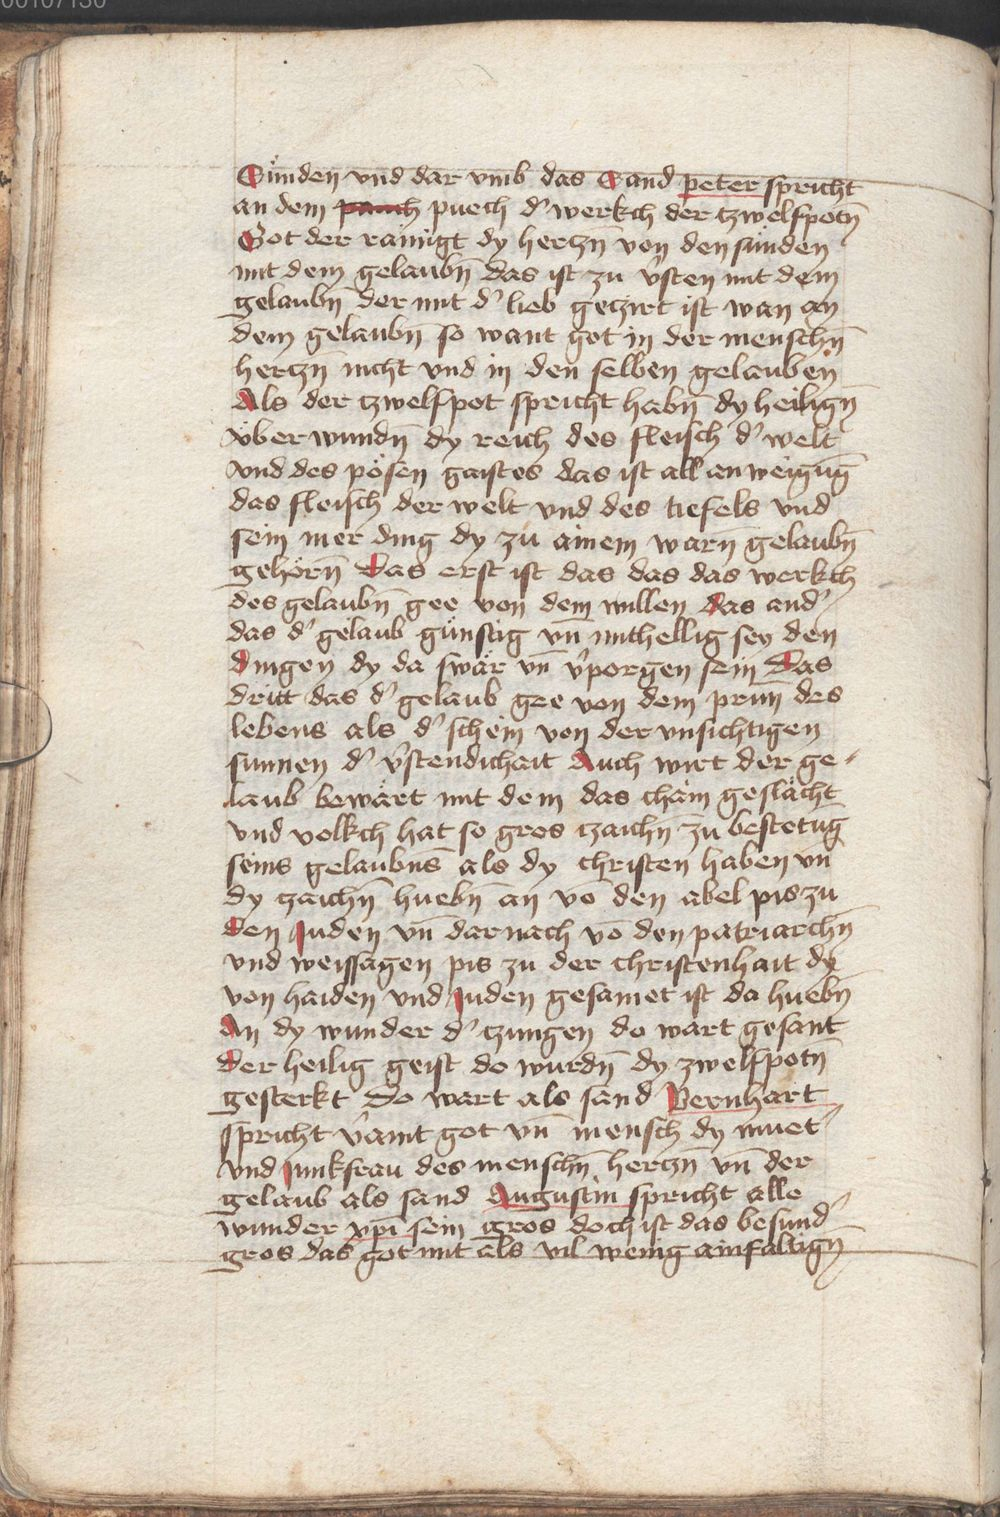 00107130
Sünden vnd dar vmb das Sand peter spricht
an dem puech d' werkch der tzwelfpotn̄
Got der rainigt dy hertzn̄ von den sunden
mit dem gelaubn̄ das ist zu v'sten mit dem
gelaubn̄ der mit d' lieb getzirt ist wan an
dem gelaubn̄ so want got in der menschn̄
hertzn̄ nicht vnd in den selben gelauben
Als der tzwelfpot spricht habn̄ dy heilign̄
vberwundn̄ dy reich des fleisch d' welt
vnd des pösen gaistes das ist all an weigūg
das fleisch der welt vnd des tiefels vnd
sein mer ding dy zu ainem warn̄ gelaubn̄
gehörn̄ Das erst ist das das das werkch
des gelaubn̄ gee von dem willen Das and'
das d' gelaub günstig vn̄ mithellig sey den
dingen dy da swär vn̄ v'porgen sein Das
dritt das d' gelaub gee von dem prun̄ des
lebens als d' schein von der vnsichtigen
sunnen d' v'stendichait Auch wirt der ge-
laub bewärt mit dem das chain geslächt
vnd volkch hat so gros tzaichn̄ zu bestetūg
seins gelaubns als dy christen haben vn̄
dy tzaichn̄ huebn̄ an vō den abel pis zu
den Juden vn̄ darnach vō den patriarchn̄
vnd weissagen pis zu der christenhait dy
von haiden vnd Juden gesamet ist da huebn̄
An dy wunder d' tzungen do wart gesant
Der heilig geist do wurdn̄ dy zwelfpotn̄
gesterkt Do wart als sand Bernhart
spricht v'aint got vn̄ mensch dy muet'
vnd Junkfrau des menschn̄ hertzn̄ vn̄ der
gelaub als sand Augustin spricht alle
wunder xp̄i sein gros doch ist das besund'
gros das got mit als vil wenig ainfaltign̄